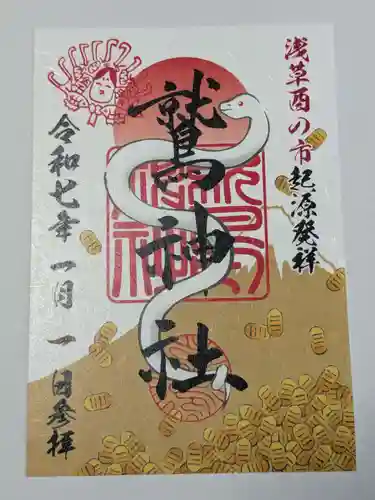 浅草酉の市起源発祥
鷲神社
令和七年一月一日参拝